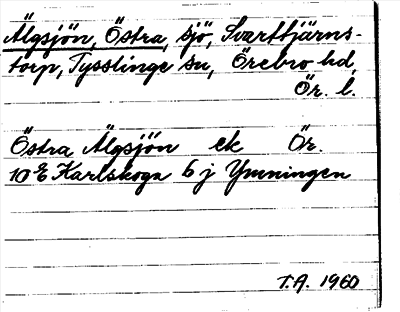 Älgsjön, Östra, sjö, Svarttjärns-
torp, Tysslinge sn, Örebro hd
Ör. l.
Östra Älgsjön ek Ör.
10E Karlskoga 6 j Ymningen
T.A. 1960